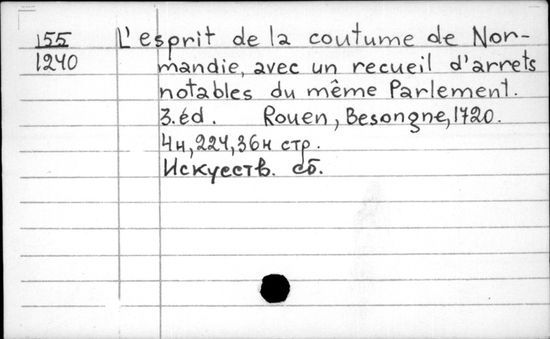 155
1240
L'esprit de la coutume de Nor-
mandie, avec un recueil d'arrets
notables du même Parlement.
3.éd. Rouen, Besongne, 1720.
4н, 224, 36н стр.
Искусств. сб.